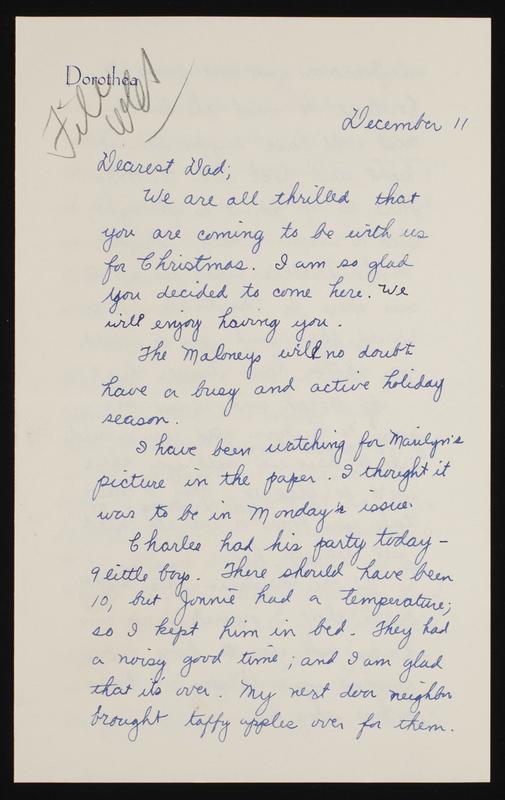 Dorothea
File
December 11
Dearest Dad;
We are all thrilled that
you are coming to be with us
for Christmas. I am so glad
you decided to come here. We
will enjoy having you.
The Maloneys will no doubt
have a busy and active holiday
season.
I have been watching for Marilyn's
picture in the paper. I thought it
was to be in Monday's issue.
Charles had his party today -
9 little boys. There should have been
10, but Jonnie had a temperature;
so I kept him in bed. They had
a noisy good time; and I am glad
that its over. My next door neighbor
brought taffy apples over for them.